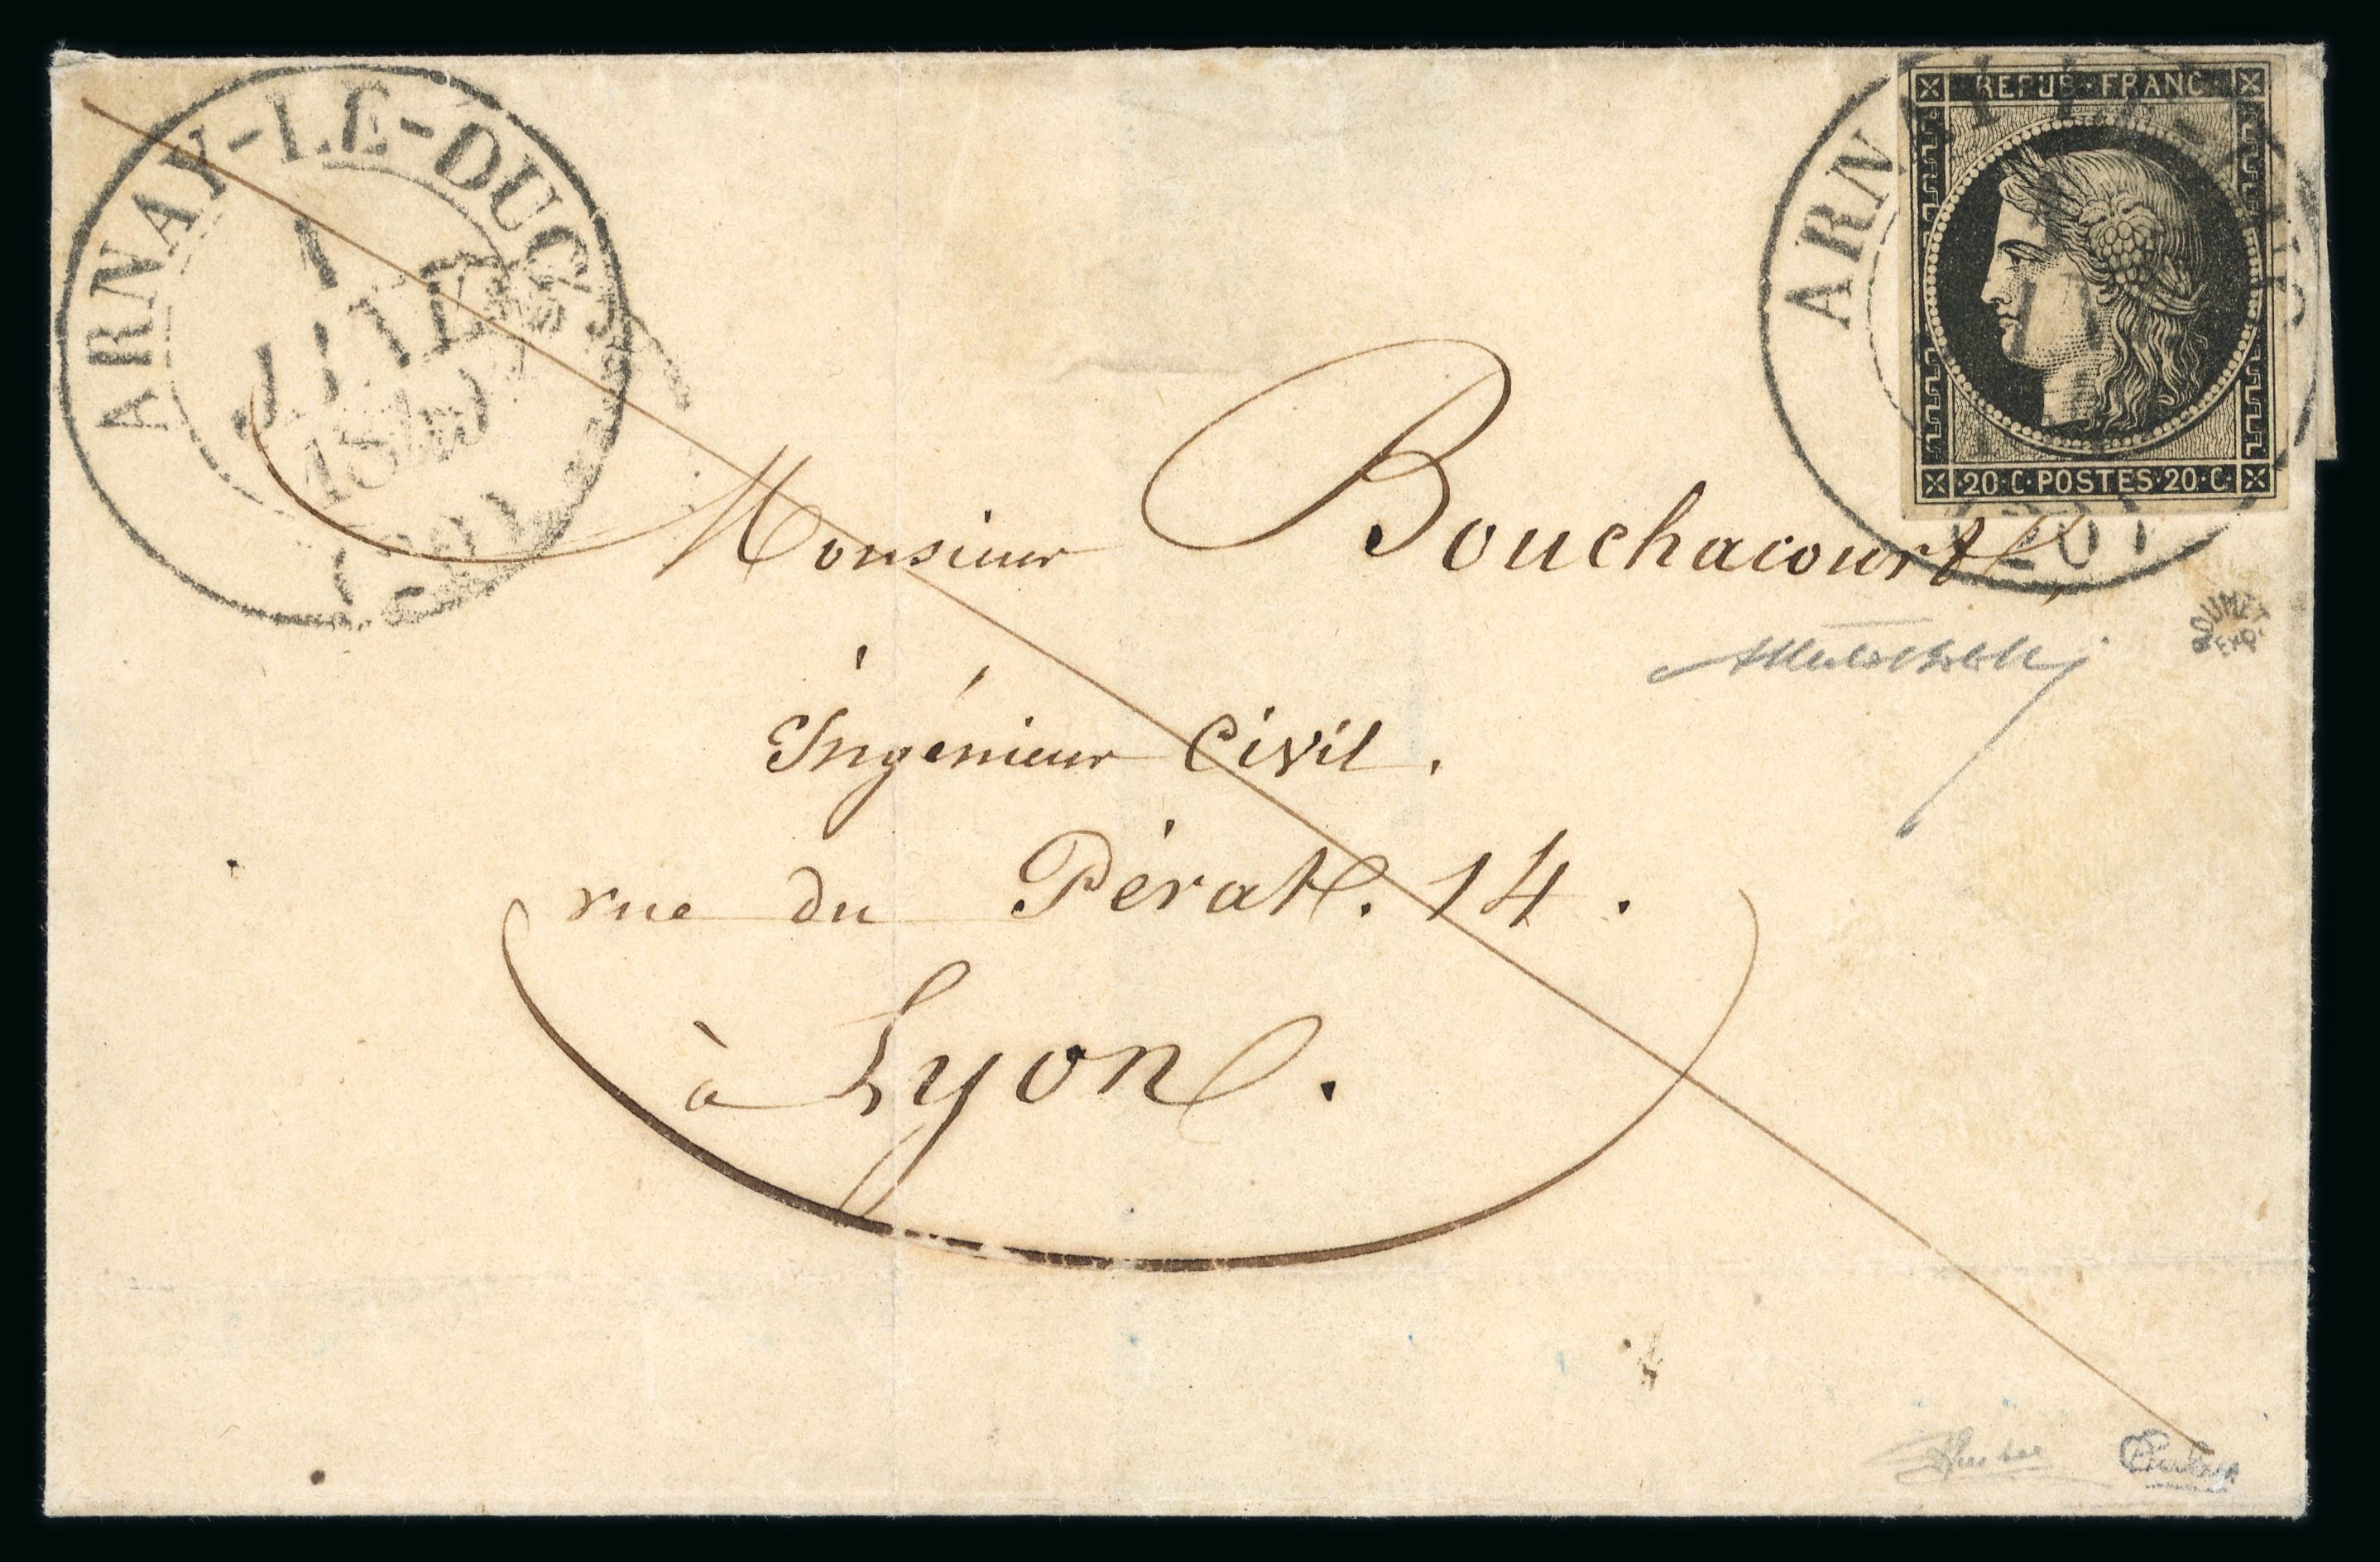 ARNAY-LE-DUC
1
JANV.
1849
(20)
REPUB·FRANC
20·C·POSTES·20·C·
ARN
(20)
Monsieur Bouchacourt,
Ingénieur Civil.
rue du Pérat. 14.
à Lyon.
ROUMET
EXP.